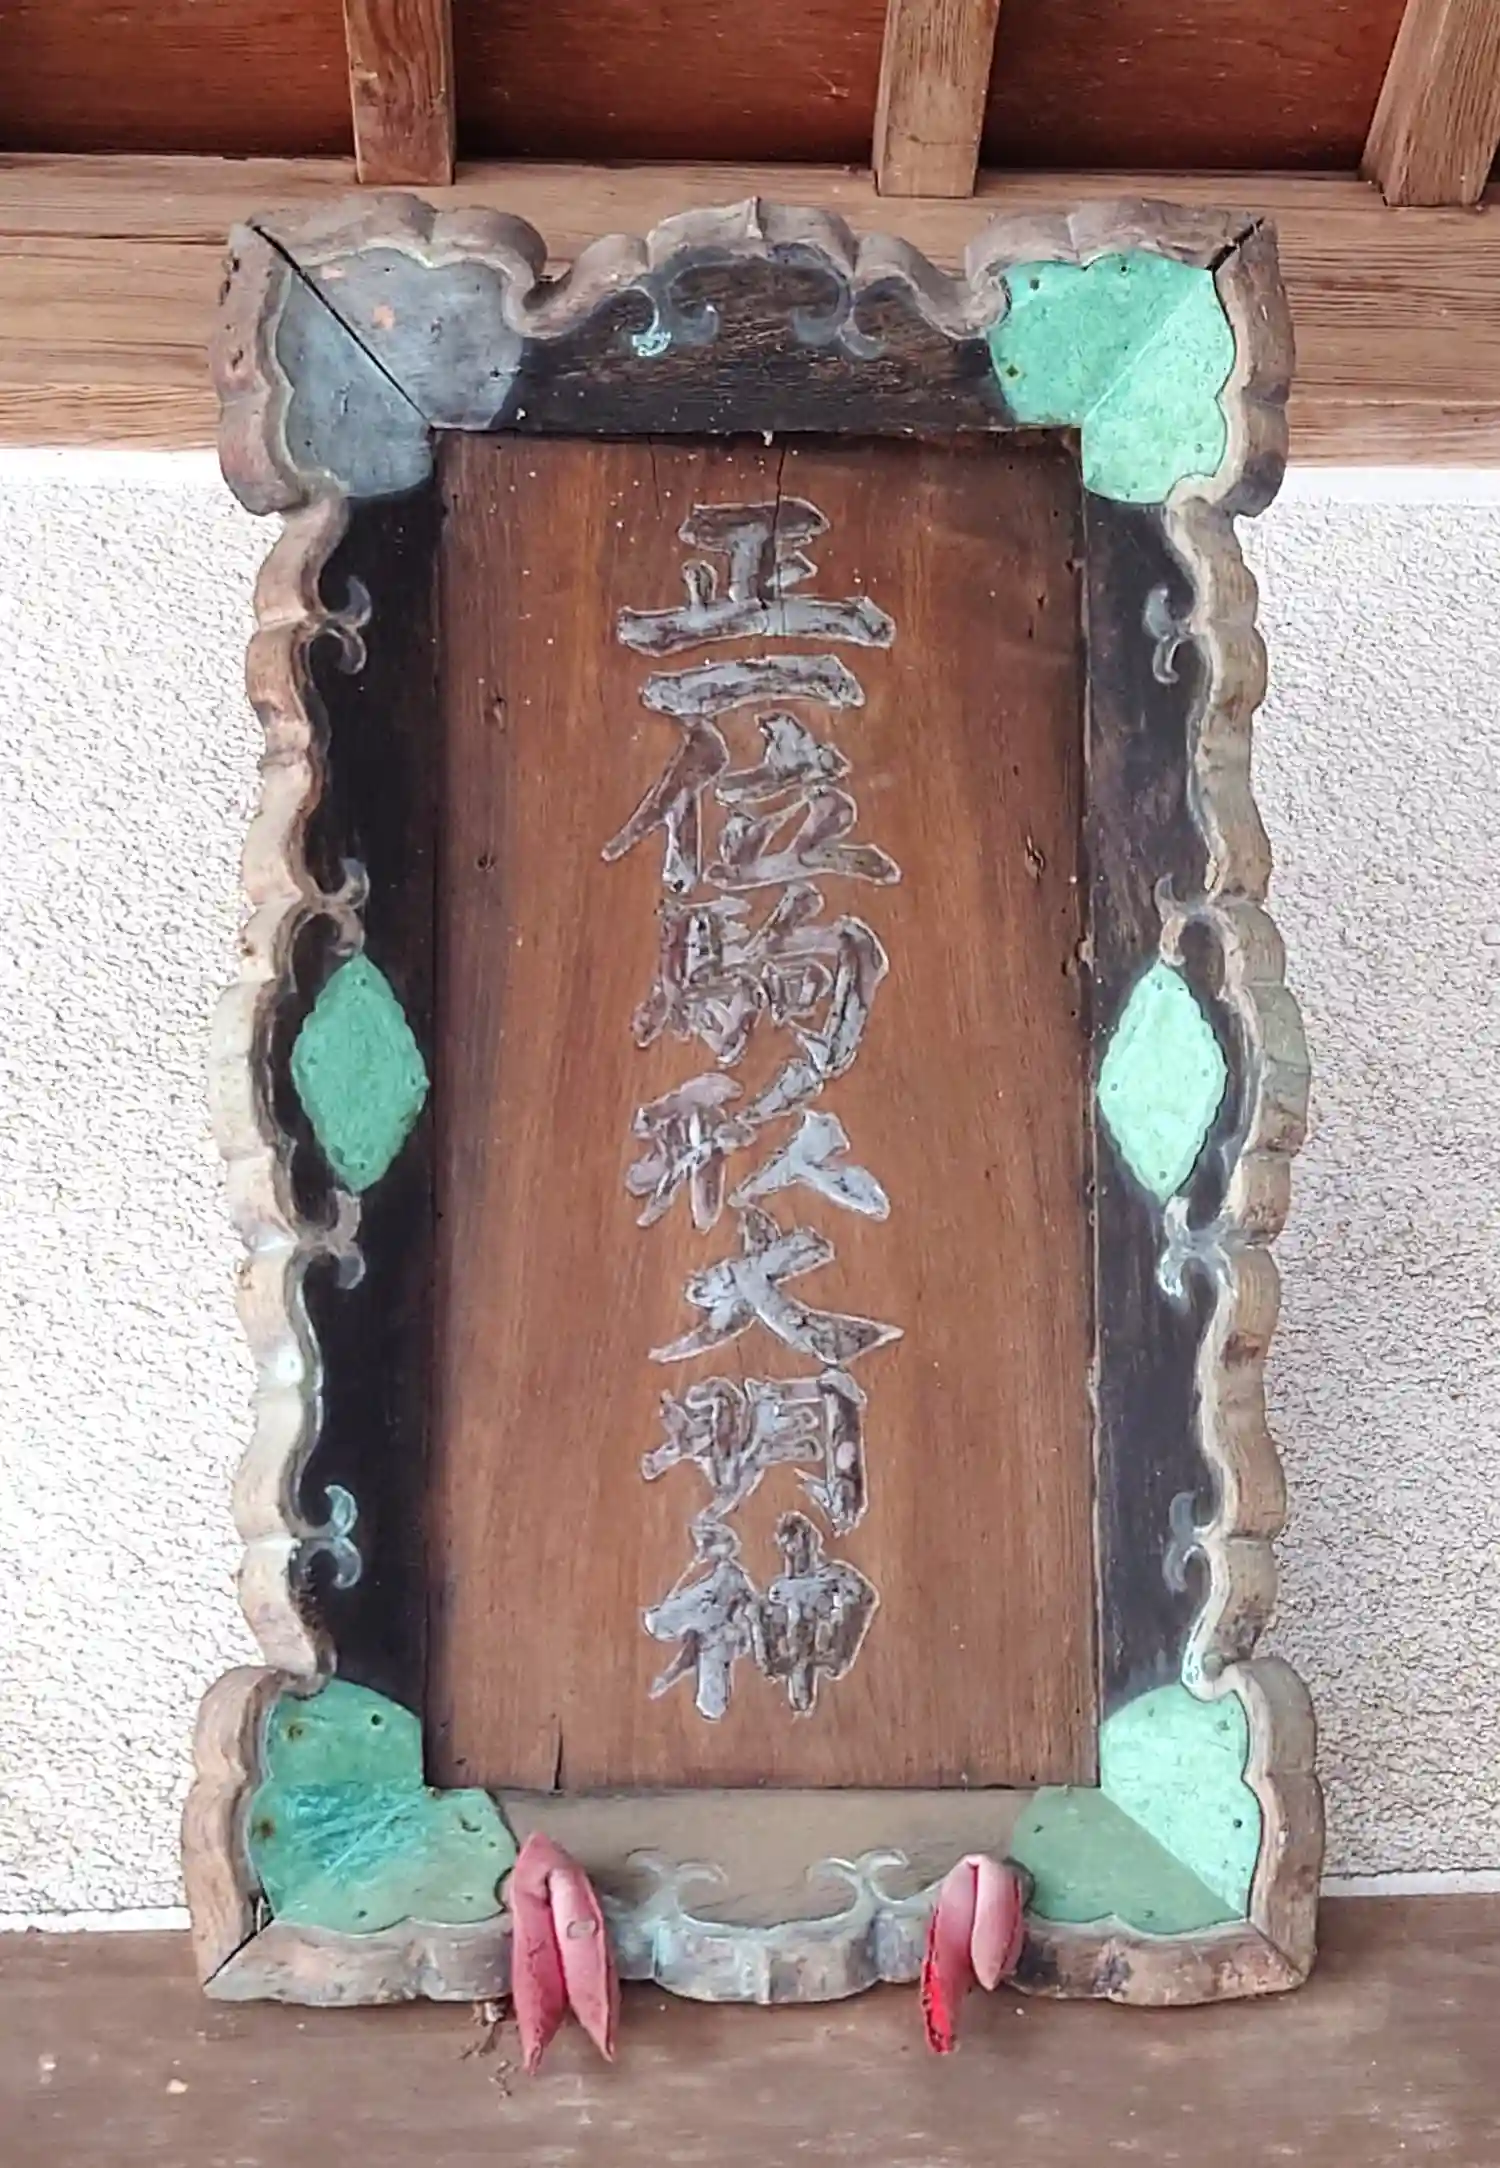 正一位駒形大明神